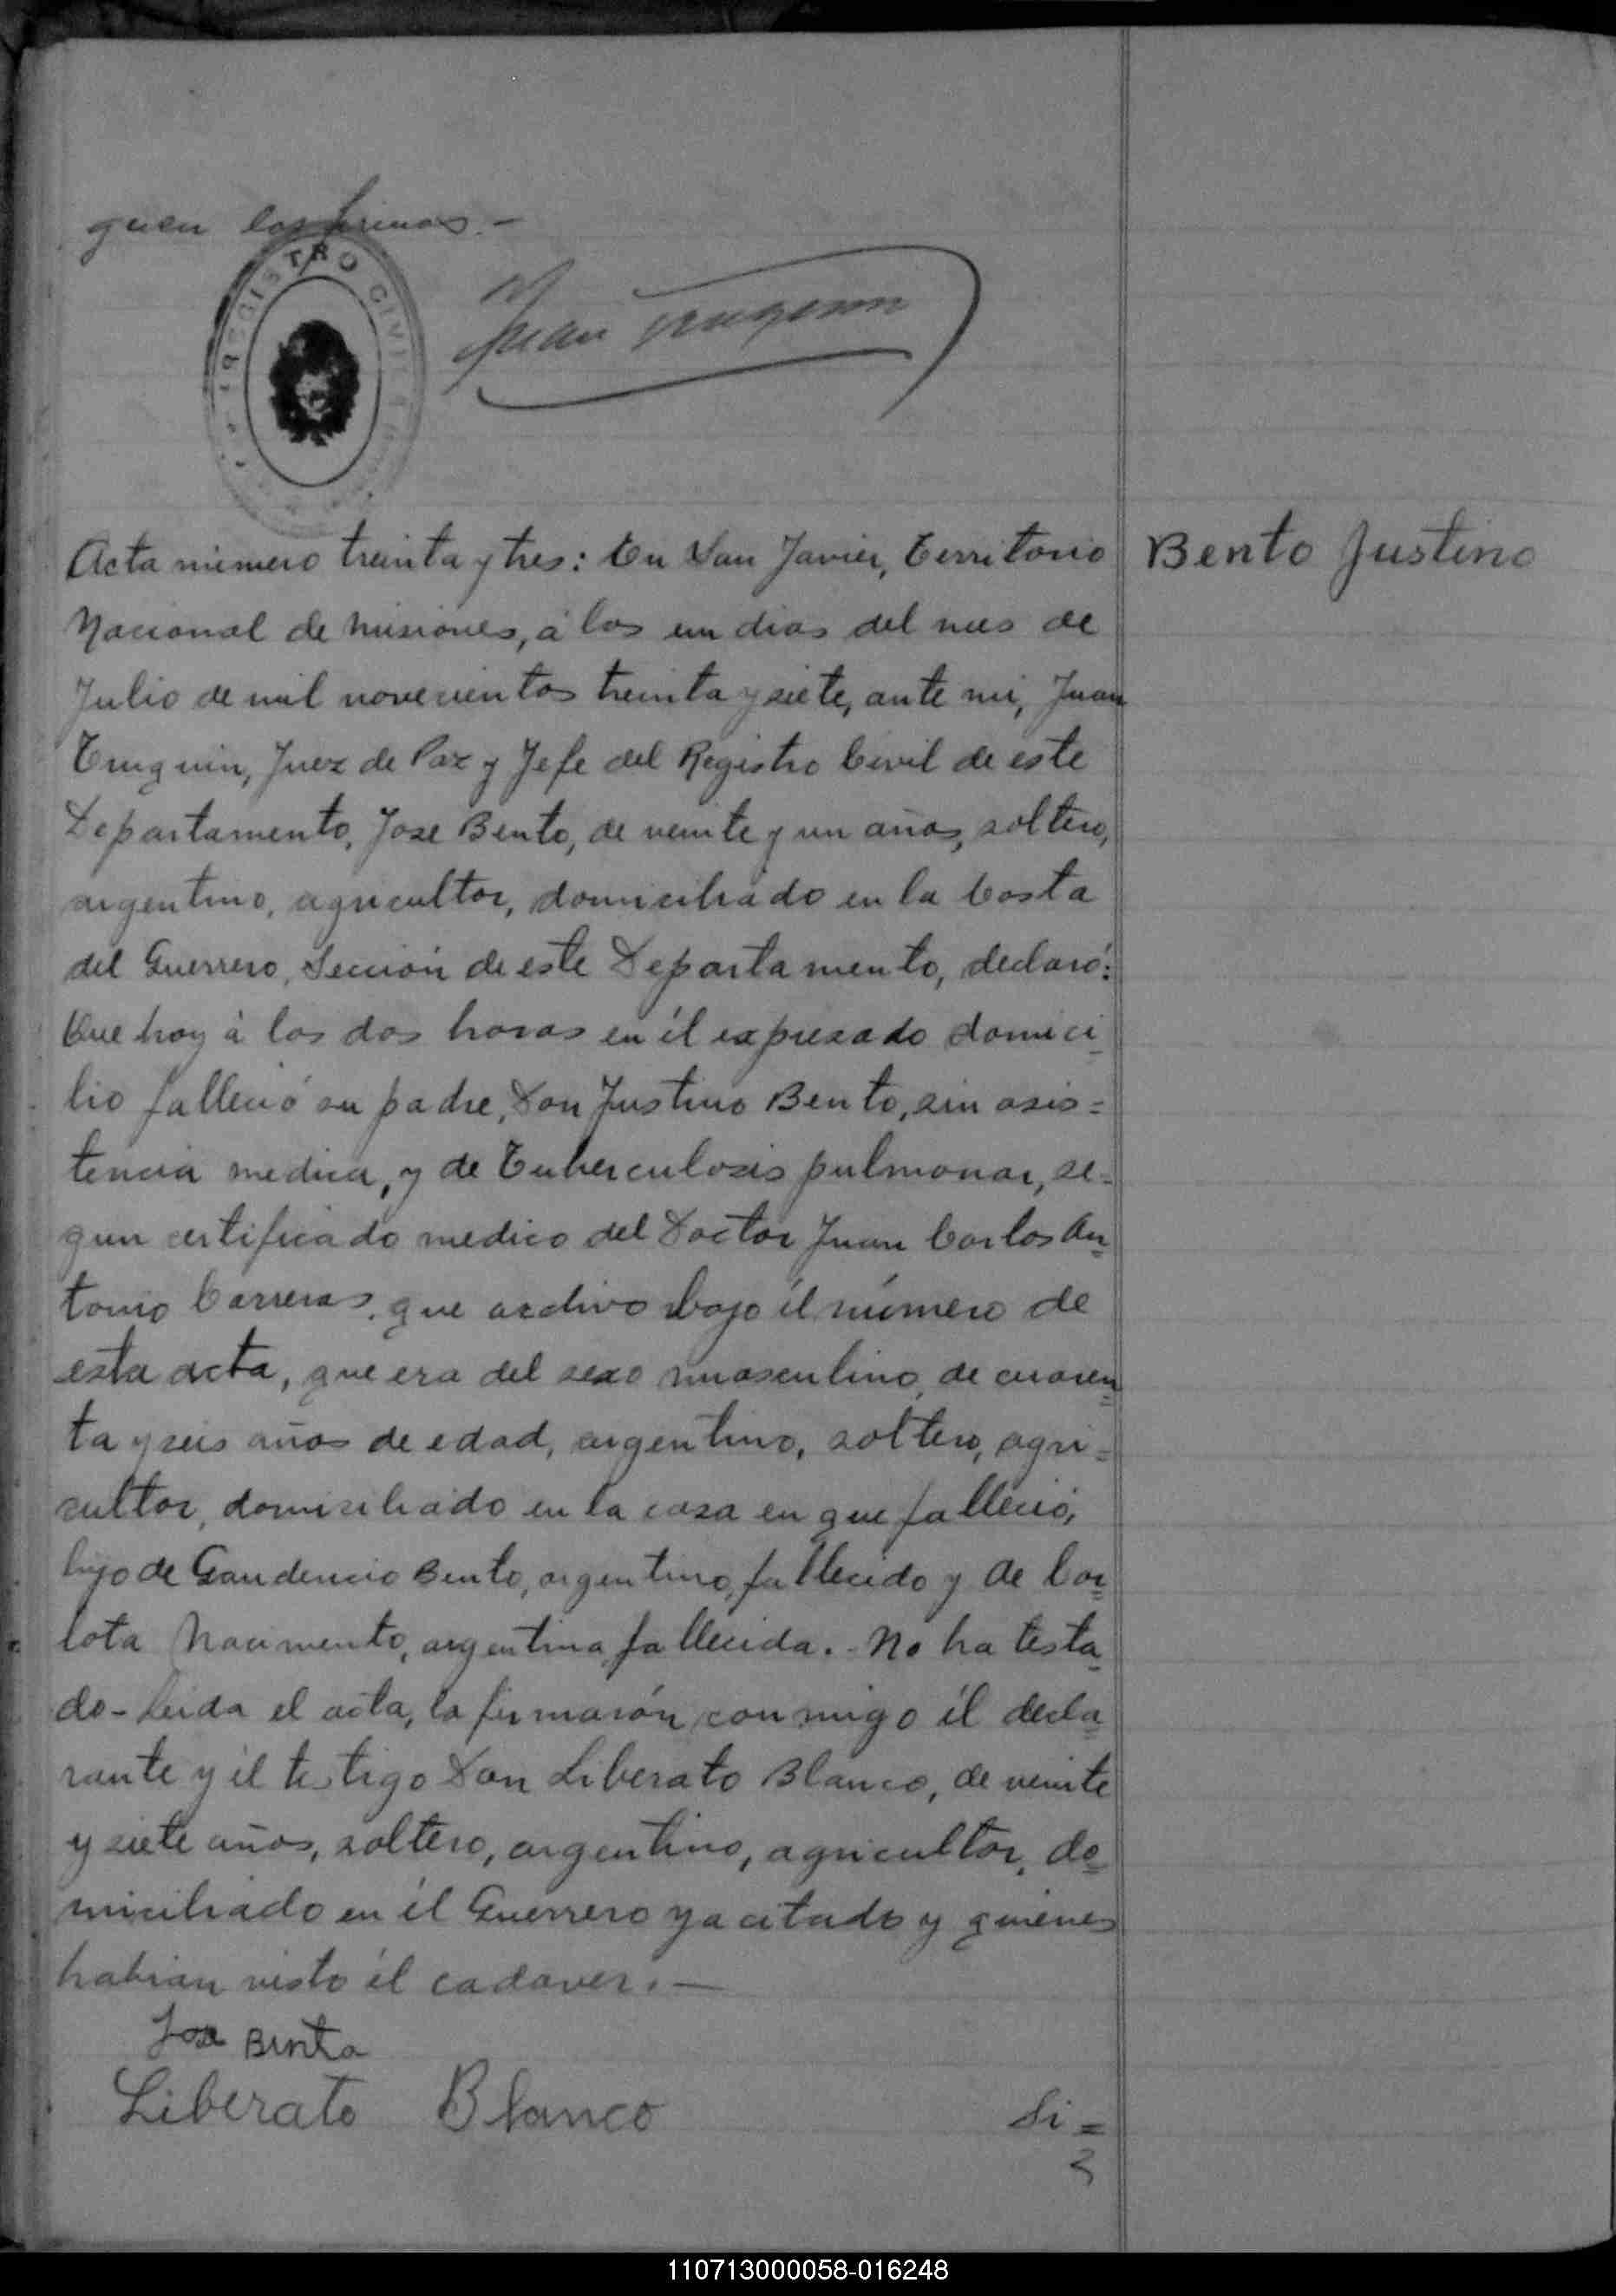 guen las firmas.-
REGISTRO CIVIL
Juan
Acta número treinta y tres: En San Javier, Territorio
Bento Justino
Nacional de Misiones, á los un dias del mes de
Julio de mil novecientos treinta y siete, ante mi, Juan
Truquin, Juez de Paz y Jefe del Registro Civil de este
Departamento, Jose Bento, de veinte y un años, soltero,
argentino, agricultor, domiciliado en la Costa
del Guerrero, Sección de este Departamento, declaró:
Que hoy á las dos horas en él expresado domici-
lio falleció su padre, Don Justino Bento, sin asis=
tencia medica, y de Tuberculosis pulmonar, se=
gun certificado medico del Doctor Juan Carlos An=
tonio Carreras, que archivo bajo él número de
esta acta, que era del sexo masculino, de cuaren=
ta y seis años de edad, argentino, soltero, agri=
cultor, domiciliado en la casa en que falleció,
hijo de Gaudencio Bento, argentino, fallecido y de Car=
lota Nacimento, argentina fallecida.- No ha testa-
do- Leida el acta, la firmarón conmigo él decla-
rante y él testigo Don Liberato Blanco, de veinte
y siete años, soltero, argentino, agricultor, do=
miciliado en él Guerrero ya citado y quienes
habian visto él cadaver.—
Jose Bento
Liberato Blanco
Si=
110713000058-016248